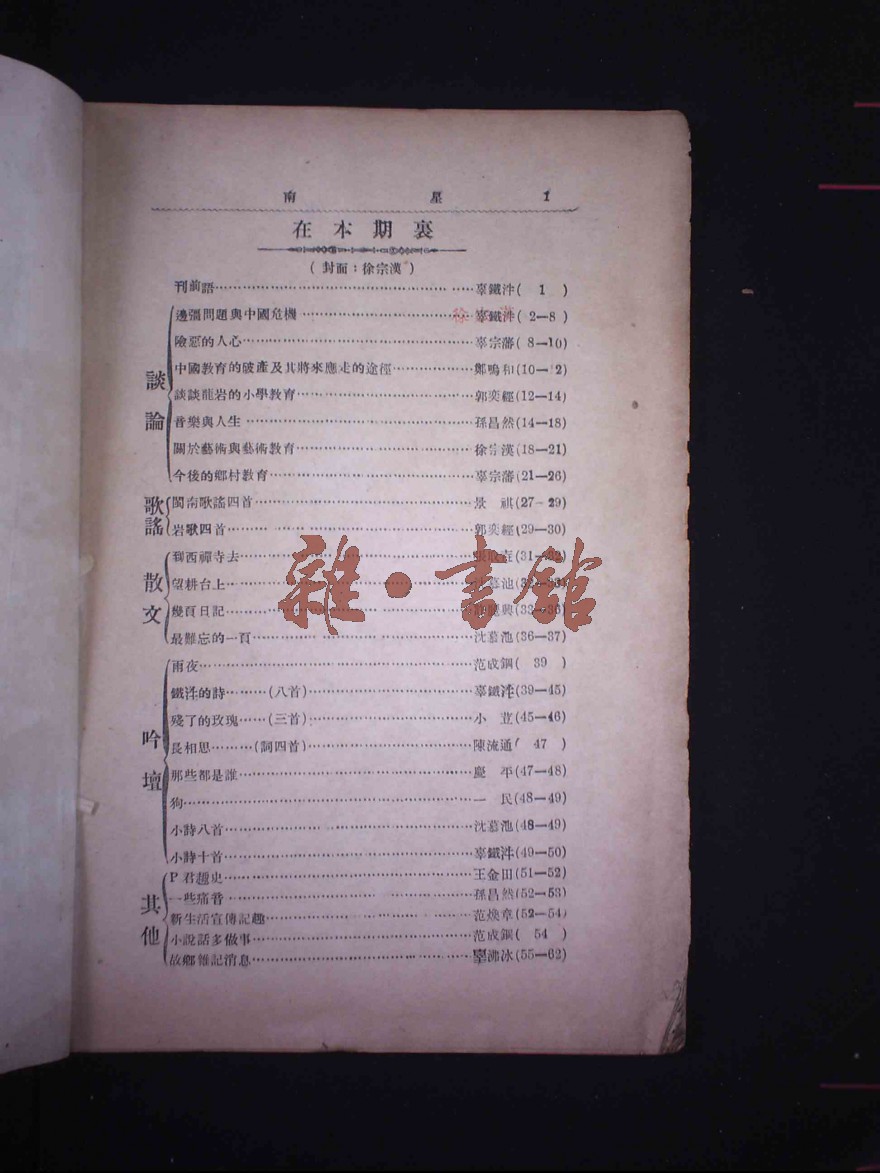 南 星 1
在本期裏
(封面:徐宗漢)
刊前語……辜鐵(1)
談論
邊彊問題與中國危機……辜鐵(2—8)
險惡的人心……辜宗藩(8—10)
中國教育的破產及其將來應走的途徑……鄭鳴和(10— 2)
談談龍岩的小學教育……郭奕經(12—14)
音樂與人生……孫昌然(14—18)
關於藝術與藝術教育……徐宗漢(18—21)
今後的鄉村教育……辜宗藩(21—26)
歌謠
閩南歌謠四首……景 祺(27—29)
岩歌四首……郭奕經(29—30)
散文
到西禪寺去……(31—32)
望耕台上……慕池
幾頁日記……興(32—36)
最難忘的一頁……沈慕池(36—37)
吟壇
雨夜……范成鋼(39)
鐵的詩……(八首)……辜鐵(39—45)
殘了的玫瑰……(三首)……小 (45—46)
長相思……(詞四首)……陳流通(47)
那些都是誰……慶 平(47—48)
狗……一 民(48—49)
小詩八首……沈慕池(48—49)
小詩十首……辜鐵(49—50)
其他
P君趣史……王金田(51—52)
一些痛語……孫昌然(52—53)
新生活宣傳記趣……范煥章(52—54)
小說話多做事……范成鋼(54)
故鄉雜記消息……沸冰(55—62)
雜·書館